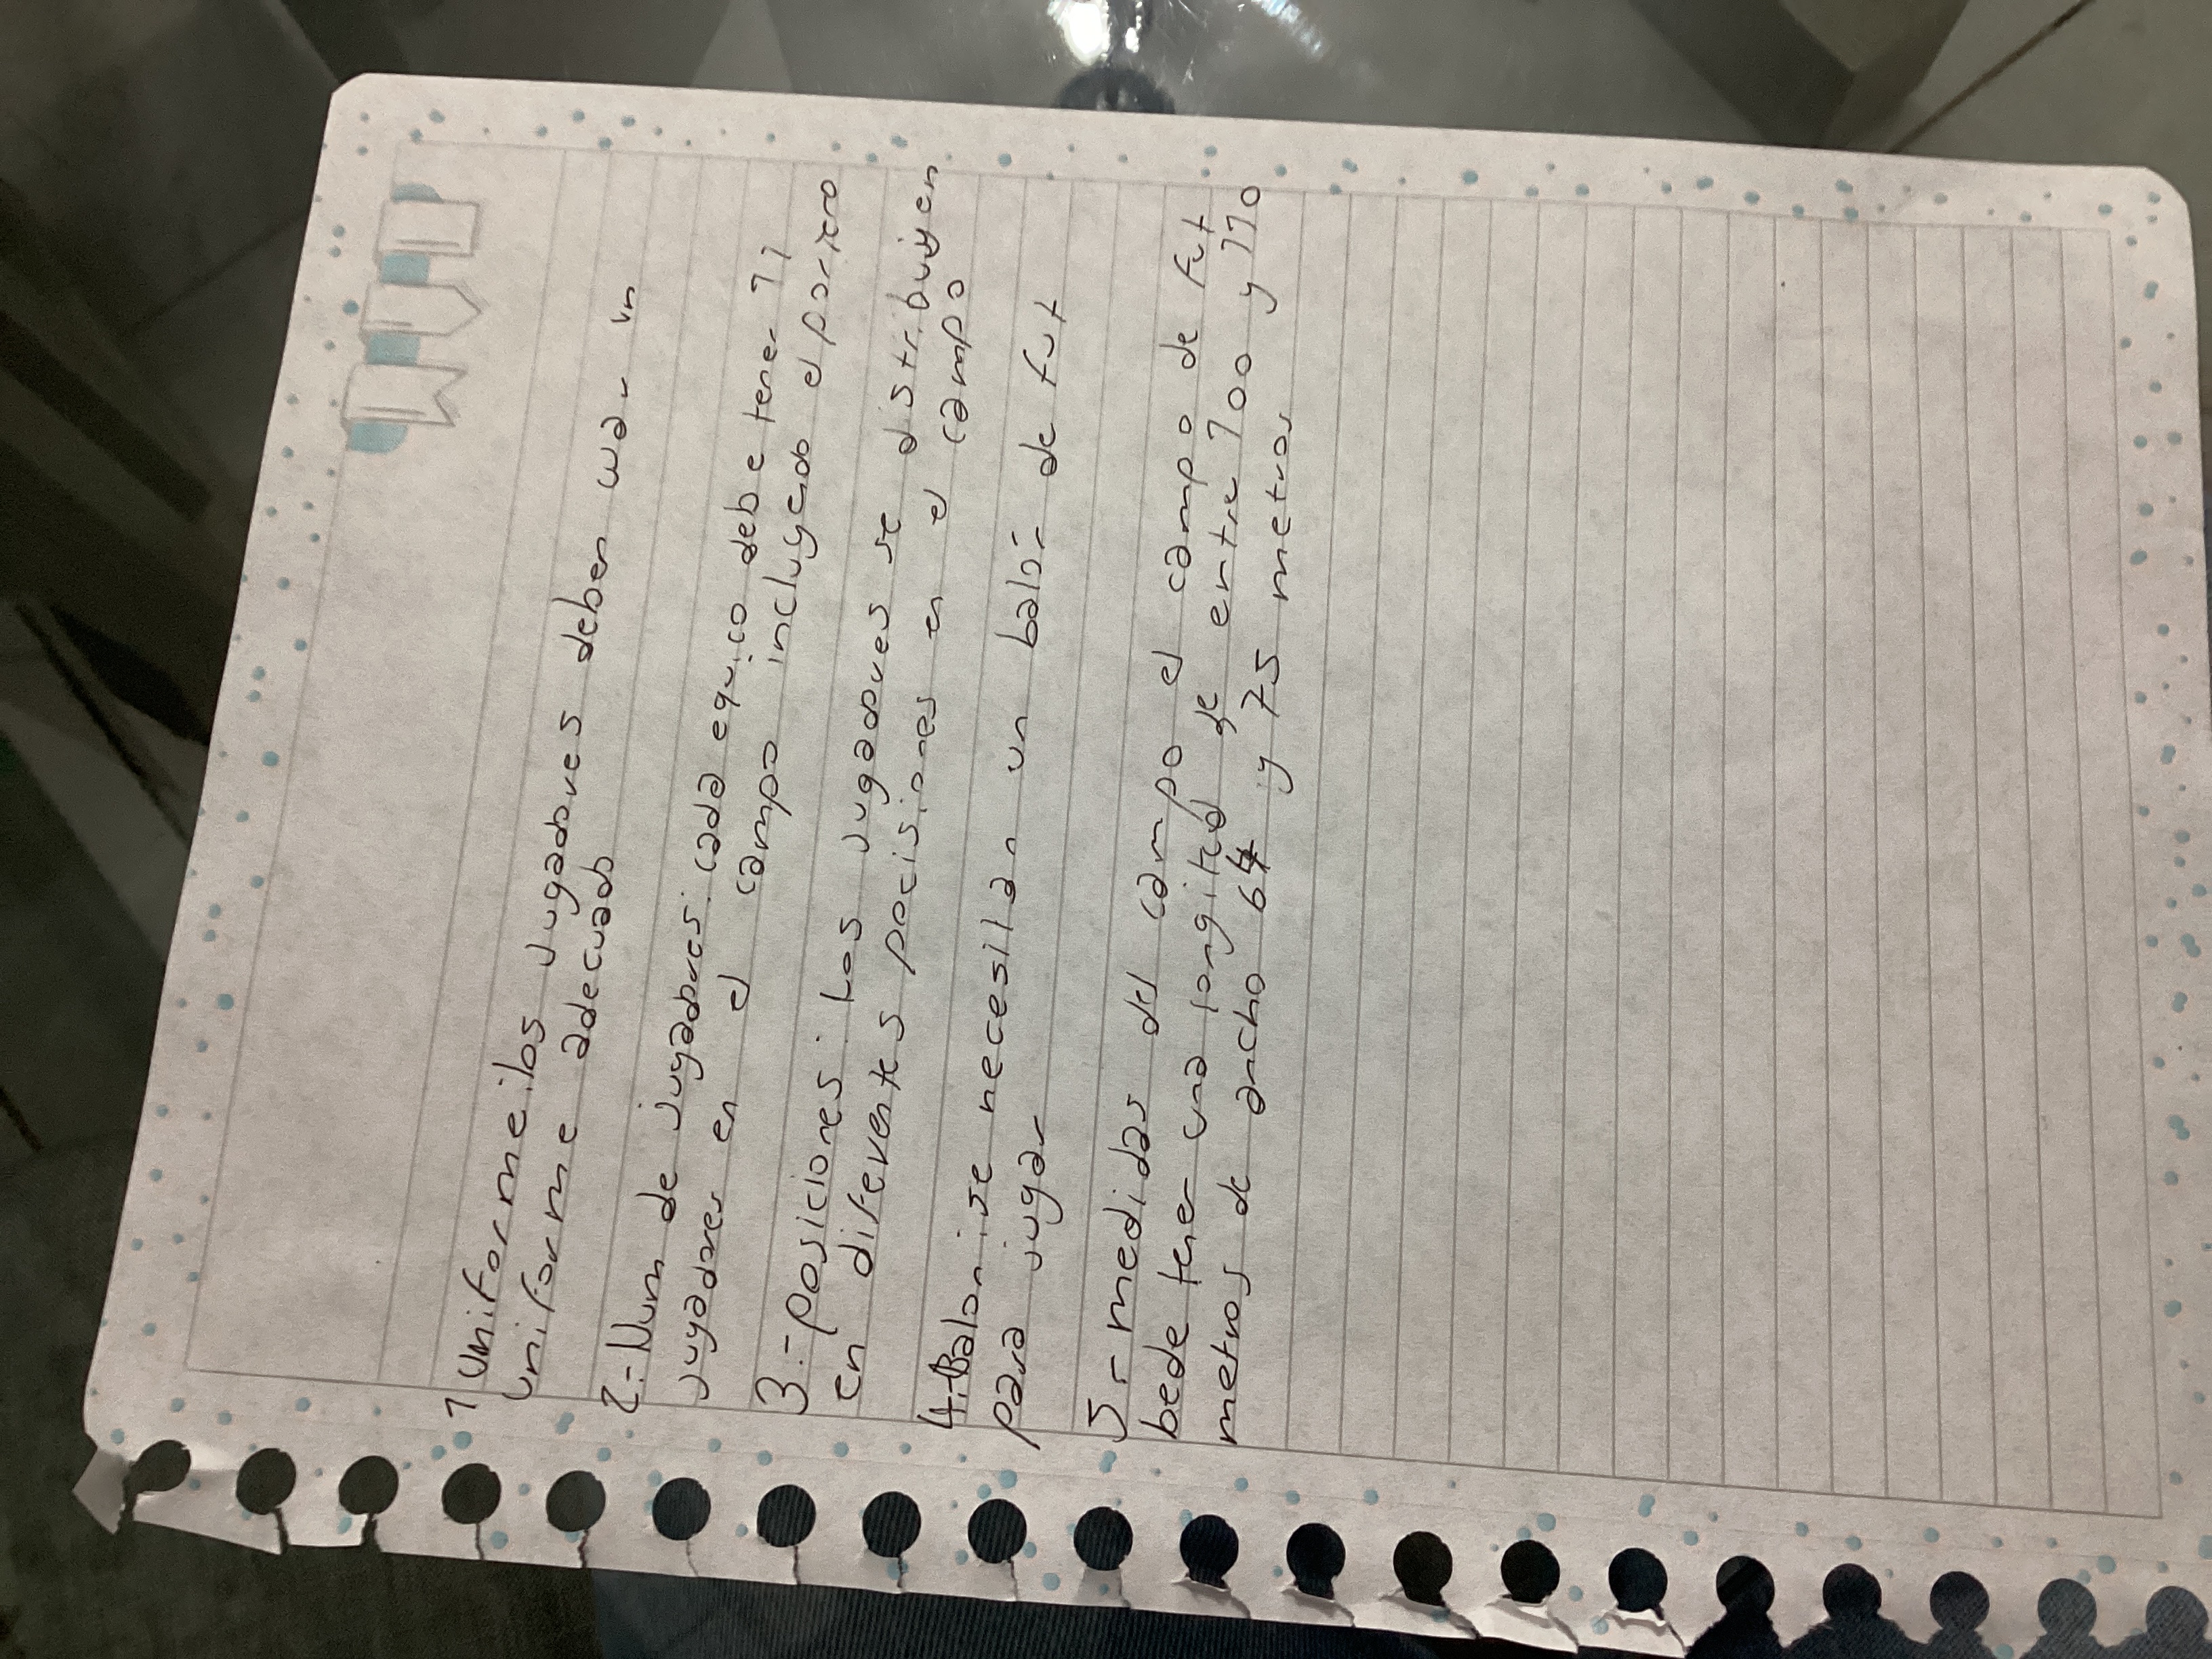 1 Uniforme: los jugadores deben usar un
uniforme adecuado
2.- Num de jugadores: cada equico debe tener 11
jugadores en el campo incluyedo el poricro
3.- posiciones: Los jugadores se distribuiyen
en diferentes pocisiones en el campo
4.-Balon: se necesitan un balón de fut
para jugar
5 - medidas del campo el campo de fut
bede tener una longitud de entre 100 y 110
metros de ancho 64 y 75 metros